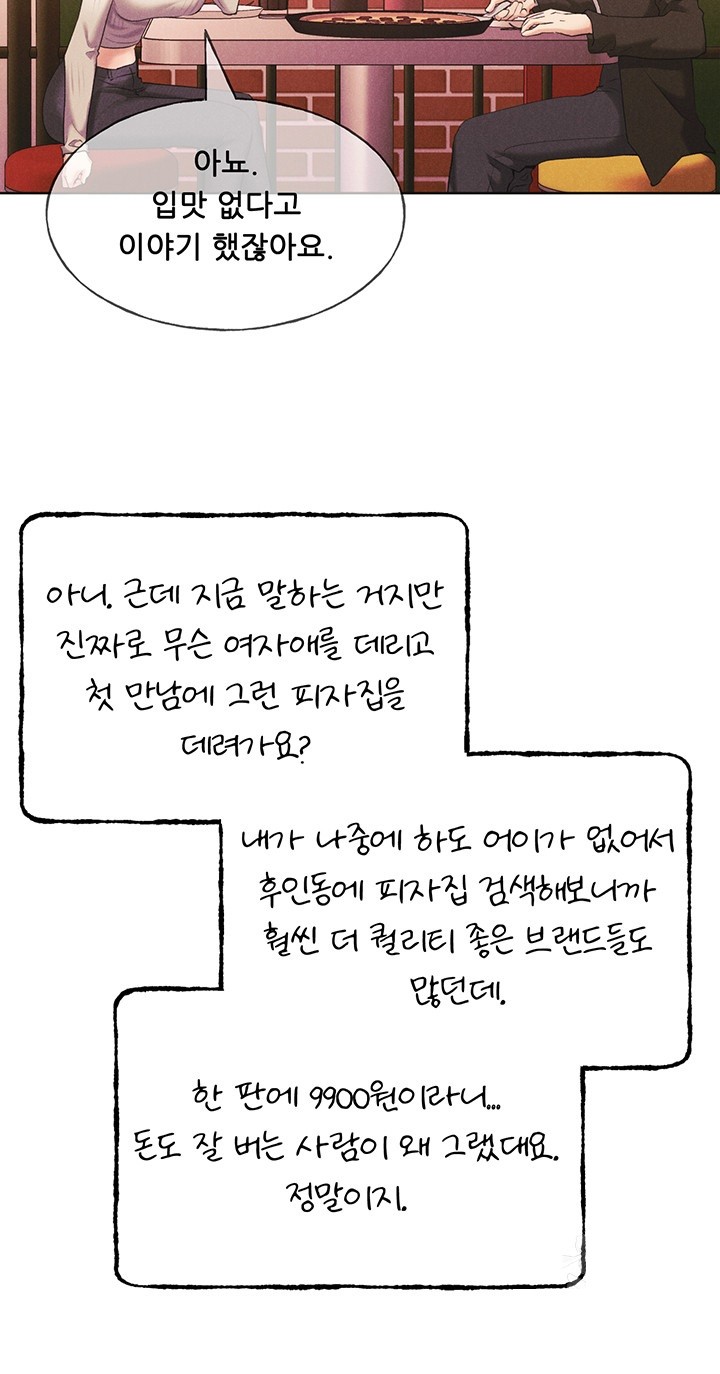 아뇨.
입맛 없다고
이야기 했잖아요.
아니. 근데 지금 말하는 거지만
진짜로 무슨 여자애를 데리고
첫 만남에 그런 피자집을
데려가요?
내가 나중에 하도 어이가 없어서
후인동에 피자집 검색해보니까
훨씬 더 퀄리티 좋은 브랜드들도
많던데.
한 판에 9900원이라니...
돈도 잘 버는 사람이 왜 그랬대요.
정말이지.